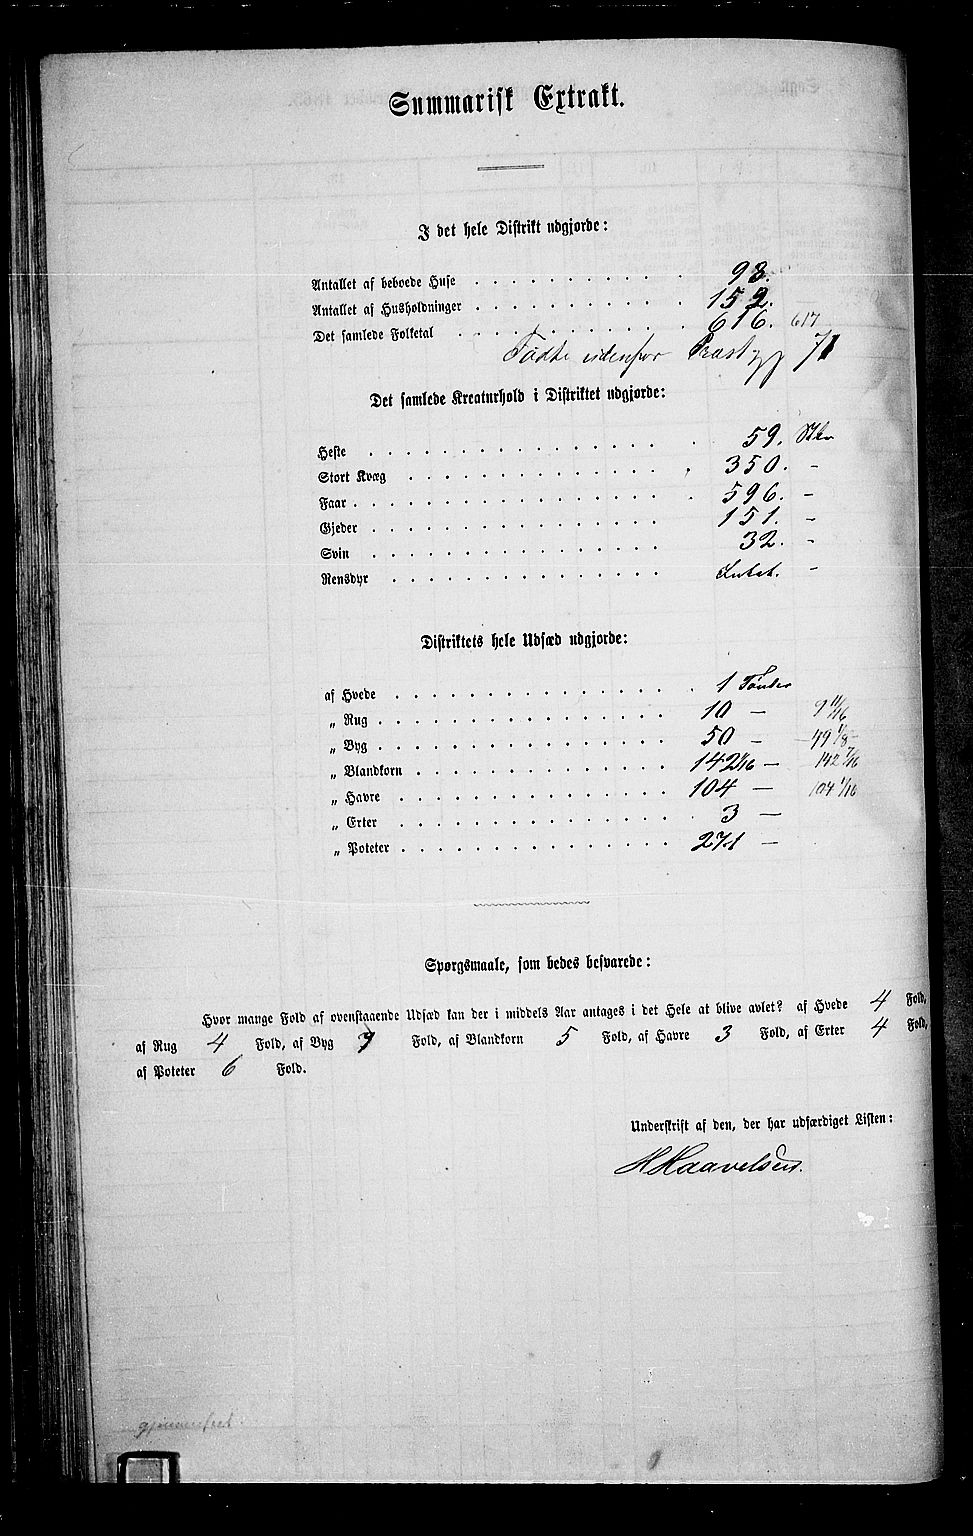 Summarisk Extrakt.
I det hele Distrikt udgjorde:
Antallet af beboede Huse . . . . . . . . . . . 98.
Antallet af Husholdninger . . . . . . . . . . . 152.
Det samlede Folketal . . . . . . . . . . . . 616. 617
Fødte udenfor Præstgj 71
Det samlede Kreaturhold i Distriktet udgjorde:
Heste . . . . . . . . . . . . . 59. Stkr
Stort Kvæg . . . . . . . . . . . . 350. -
Faar . . . . . . . . . . . . . . 596. -
Gjeder . . . . . . . . . . . . 151. -
Svin . . . . . . . . . . . . 32. -
Rensdyr . . . . . . . . . . . Intet. -
Distriktets hele Udsæd udgjorde:
af Hvede . . . . . . . . . . . . . 1 Tønder
„ Rug . . . . . . . . . . . . . 10 — 9 11/16
„ Byg . . . . . . . . . . . . . 50 — 49 1/8 —
„ Blandkorn . . . . . . . . . . . 142 7/16 — 142 7/16
„ Havre . . . . . . . . . . . . 104 — 104 1/16
„ Erter . . . . . . . . . . . . . 3 —
„ Poteter . . . . . . . . . . . . 271 —
Spørgsmaale, som bedes besvarede:
Hvor mange Fold af ovenstaaende Udsæd kan der i middels Aar antages i det Hele at blive avlet? af Hvede 4 Fold,
af Rug 4 Fold, af Byg 7 Fold, af Blandkorn 5 Fold, af Havre 3 Fold, af Erter 4 Fold,
af Poteter 6 Fold.
Underskrift af den, der har udfærdiget Listen:
H Haavelsen.